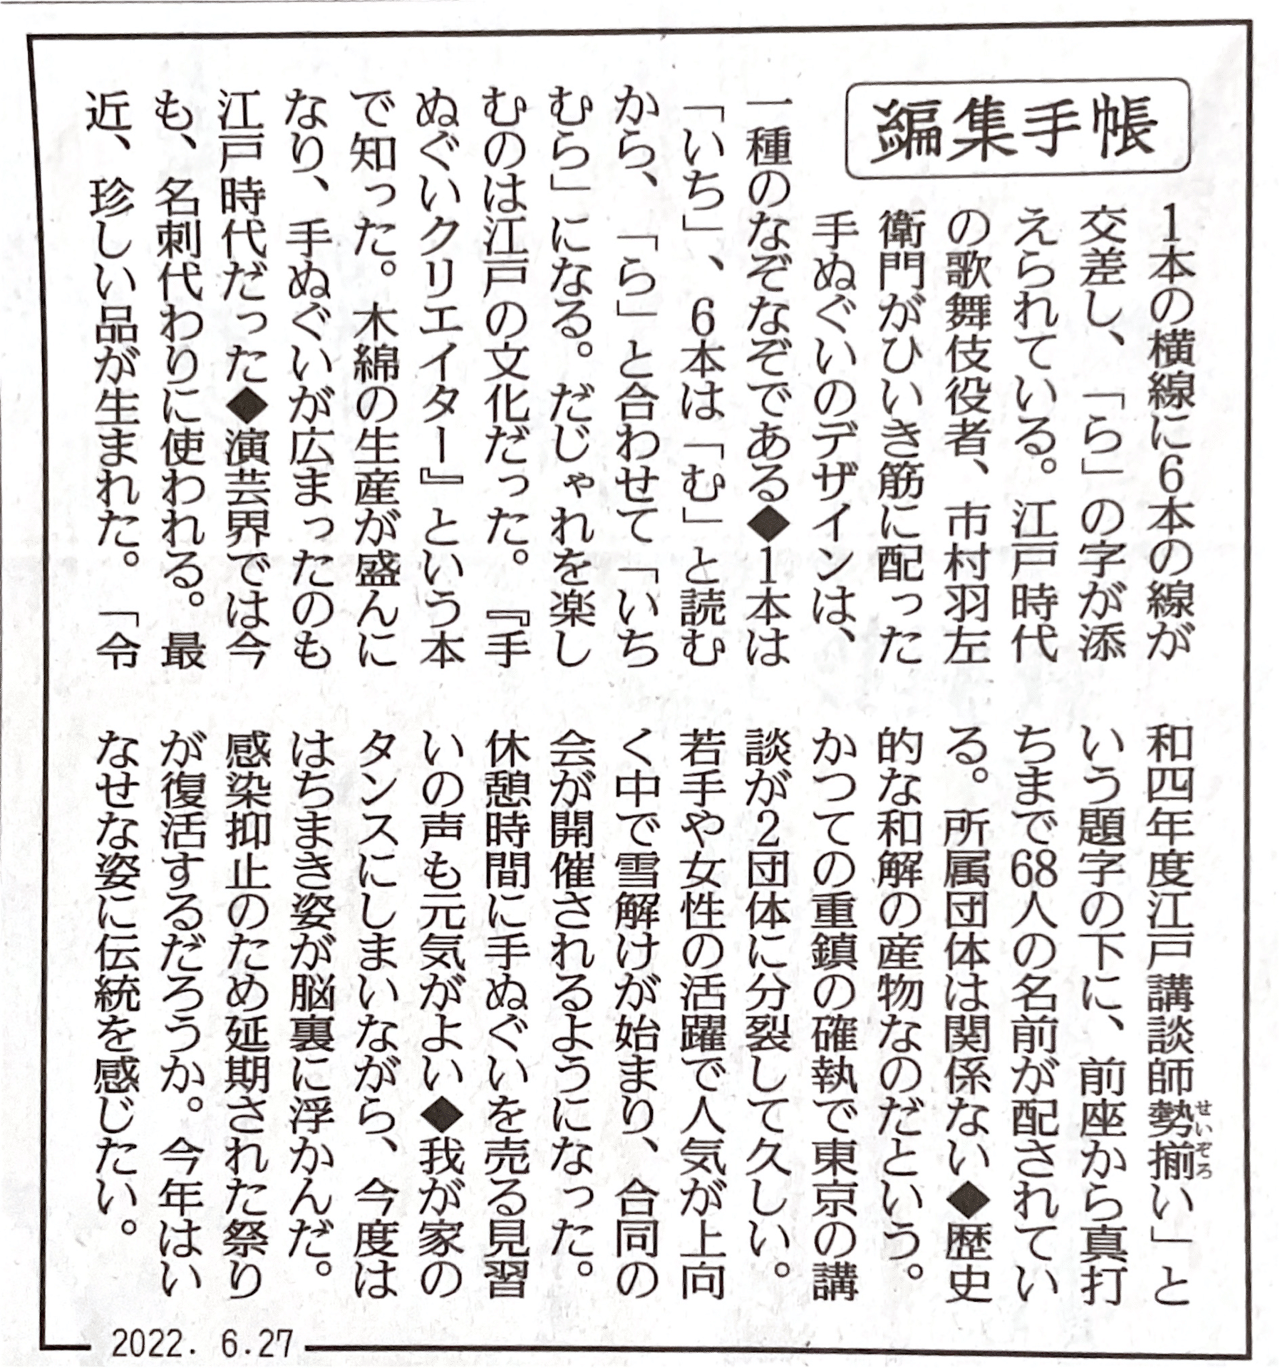 編集手帳
1本の横線に6本の線が
交差し、「ら」の字が添
えられている。江戸時代
の歌舞伎役者、市村羽左
衛門がひいき筋に配った
手ぬぐいのデザインは、
一種のなぞなぞである◆1本は
「いち」、6本は「む」と読む
から、「ら」と合わせて「いち
むら」になる。だじゃれを楽し
むのは江戸の文化だった。『手
ぬぐいクリエイター』という本
で知った。木綿の生産が盛んに
なり、手ぬぐいが広まったのも
江戸時代だった◆演芸界では今
も、名刺代わりに使われる。最
近、珍しい品が生まれた。「令
和四年度江戸講談師勢揃い」と
せいぞろ
いう題字の下に、前座から真打
ちまで68人の名前が配されてい
る。所属団体は関係ない◆歴史
的な和解の産物なのだという。
かつての重鎮の確執で東京の講
談が2団体に分裂して久しい。
若手や女性の活躍で人気が上向
く中で雪解けが始まり、合同の
会が開催されるようになった。
休憩時間に手ぬぐいを売る見習
いの声も元気がよい◆我が家の
タンスにしまいながら、今度は
はちまき姿が脳裏に浮かんだ。
感染抑止のため延期された祭り
が復活するだろうか。今年はい
なせな姿に伝統を感じたい。
2022. 6.27